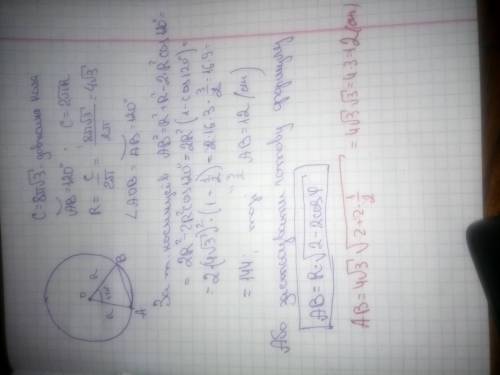 C=8π√3 довжина кола
AB=120°, C=2πR
R = C/2π = 8π√3/2π = 4√3
∠AOB = AB = 120°
O
R
R
120°
A
B
За т. косинусів AB²=R²+R²-2R²cos120°=
= 2R²-2R²cos120°=2R²(1-cos120°)=
=2(4√3)²·(1-(-1/2))=2·16·3·3/2=16·9=
=144; тоді AB=12 (см)
Або застосувати готову формулу
AB = R·√2-2cosφ
AB=4√3 √2+2·1/2 = 4√3·√3=4·3=12(см)